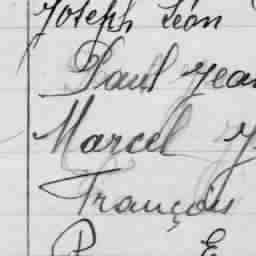 Joseph Léon
Paul Jean
Marcel
François